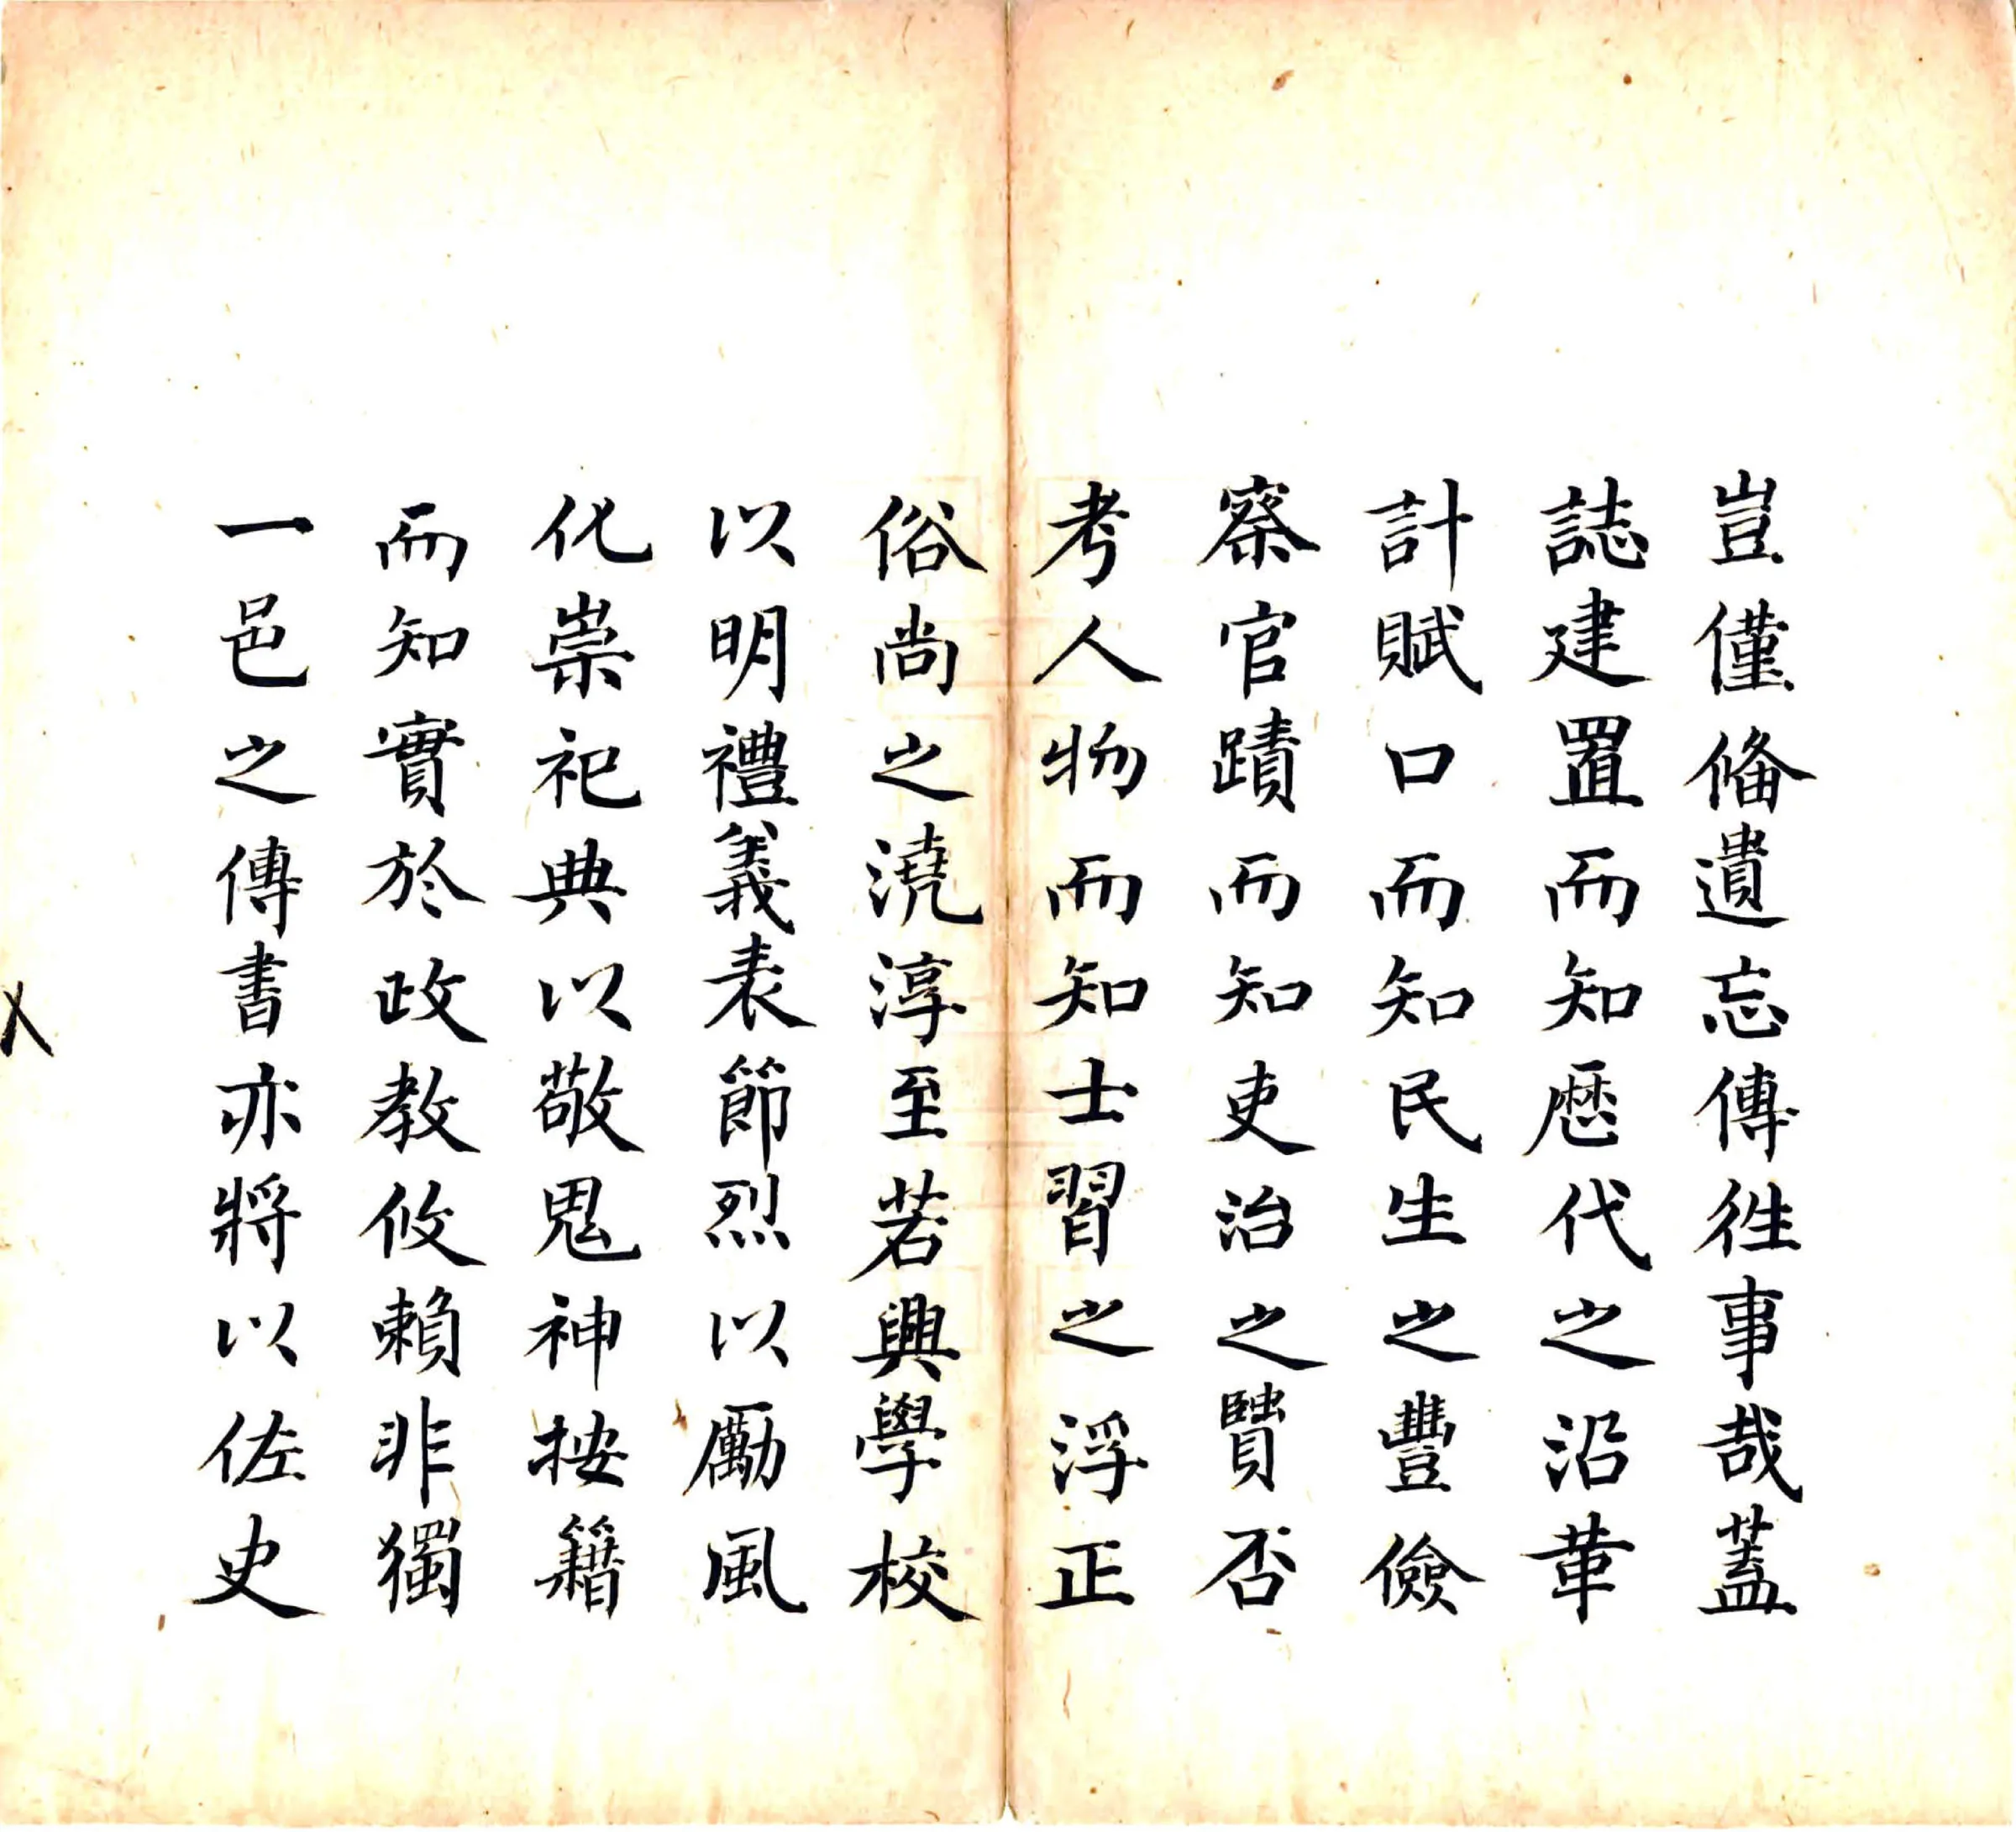 豈僅俻遺忘傳徃事哉蓋
誌建置而知歴代之沿革
計賦口而知民生之豐儉
察官蹟而知吏治之賢否
考人物而知士習之浮正
俗尚之澆淳至若興學校
以明禮義表節烈以勵風
化崇祀典以敬鬼神按籍
而知實於政教攸賴非獨
一邑之傳書亦將以佐史